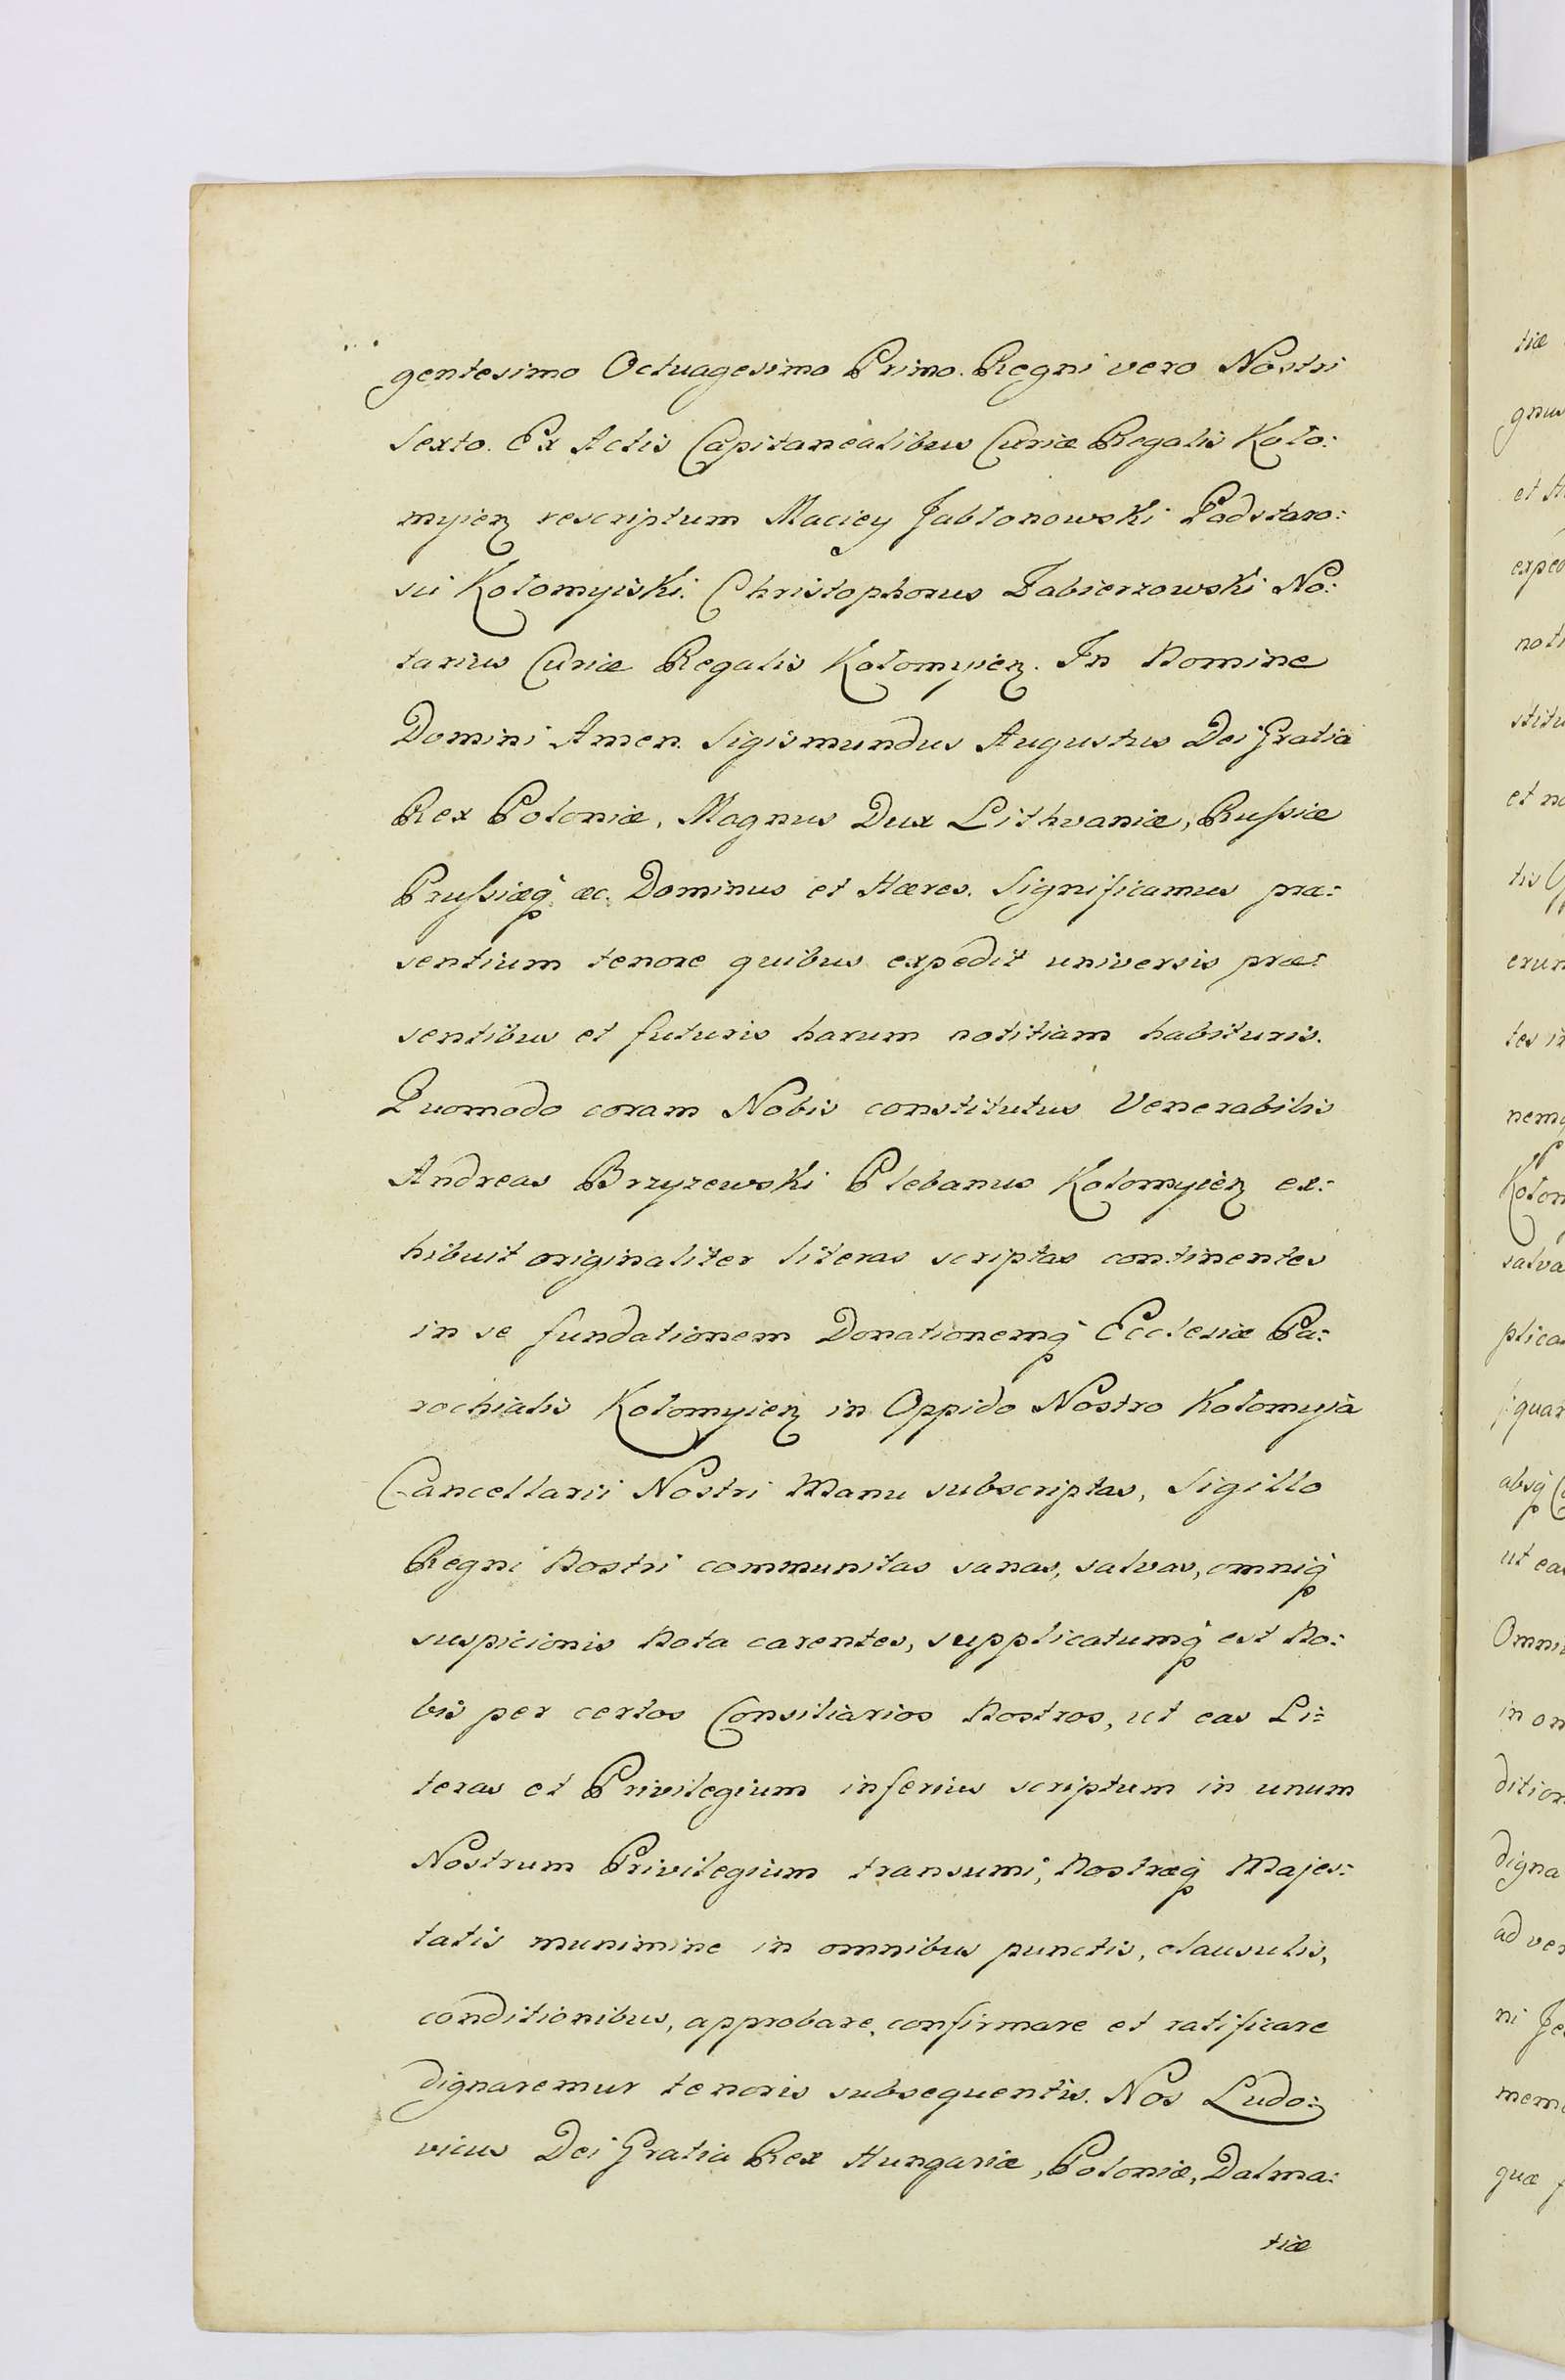 gentesimo Octuagesimo Primo. Regni vero Nostri
Sexto. Ex Actis Capitanealibus Curiæ Regalis Kolo:
myien rescriptum Maciey Jablonowski Podstaro:
sci Kolomyiski. Christophorus Dabierzowski No:
tarius Curiæ Regalis Kolomyien. In Nomine
Domini Amen. Sigismundus Augustus Dei Gratia
Rex Poloniæ, Magnus Dux Lithvaniæ, Russiæ
Prussiæq, æc. Dominus et Hæres. Significamus præ:
sentium tenore quibus expedit universis præ:
sentibus et futuris harum notitiam habituris.
Quomodo coram Nobis constitutus Venerabilis
Andreas Brzyzewski Plebanus Kolomyien ex:
hibuit originaliter literas scriptas continentes
in se fundationem Donationemq Ecclesiæ Pa:
rochialis Kolomyien in Oppido Nostro Kolomyja
Cancellarii Nostri Manu subscriptas, Sigillo
Regni Nostri communitas sanas, salvas, omniq
suspicionis Nota carentes, supplicatumq est No:
bis per certos Consiliarios Nostros, ut eas Li:
teras et Privilegium inferius scriptum in unum
Nostrum Privilegium transumi, Nostræq Majes:
tatis munimine in omnibus punctis, clausulis,
conditionibus, approbare, confirmare et ratificare
dignaremur tenoris subsequentis. Nos Ludo:
vicus Dei Gratia Rex Hungariæ, Poloniæ, Dalma:
tiæ